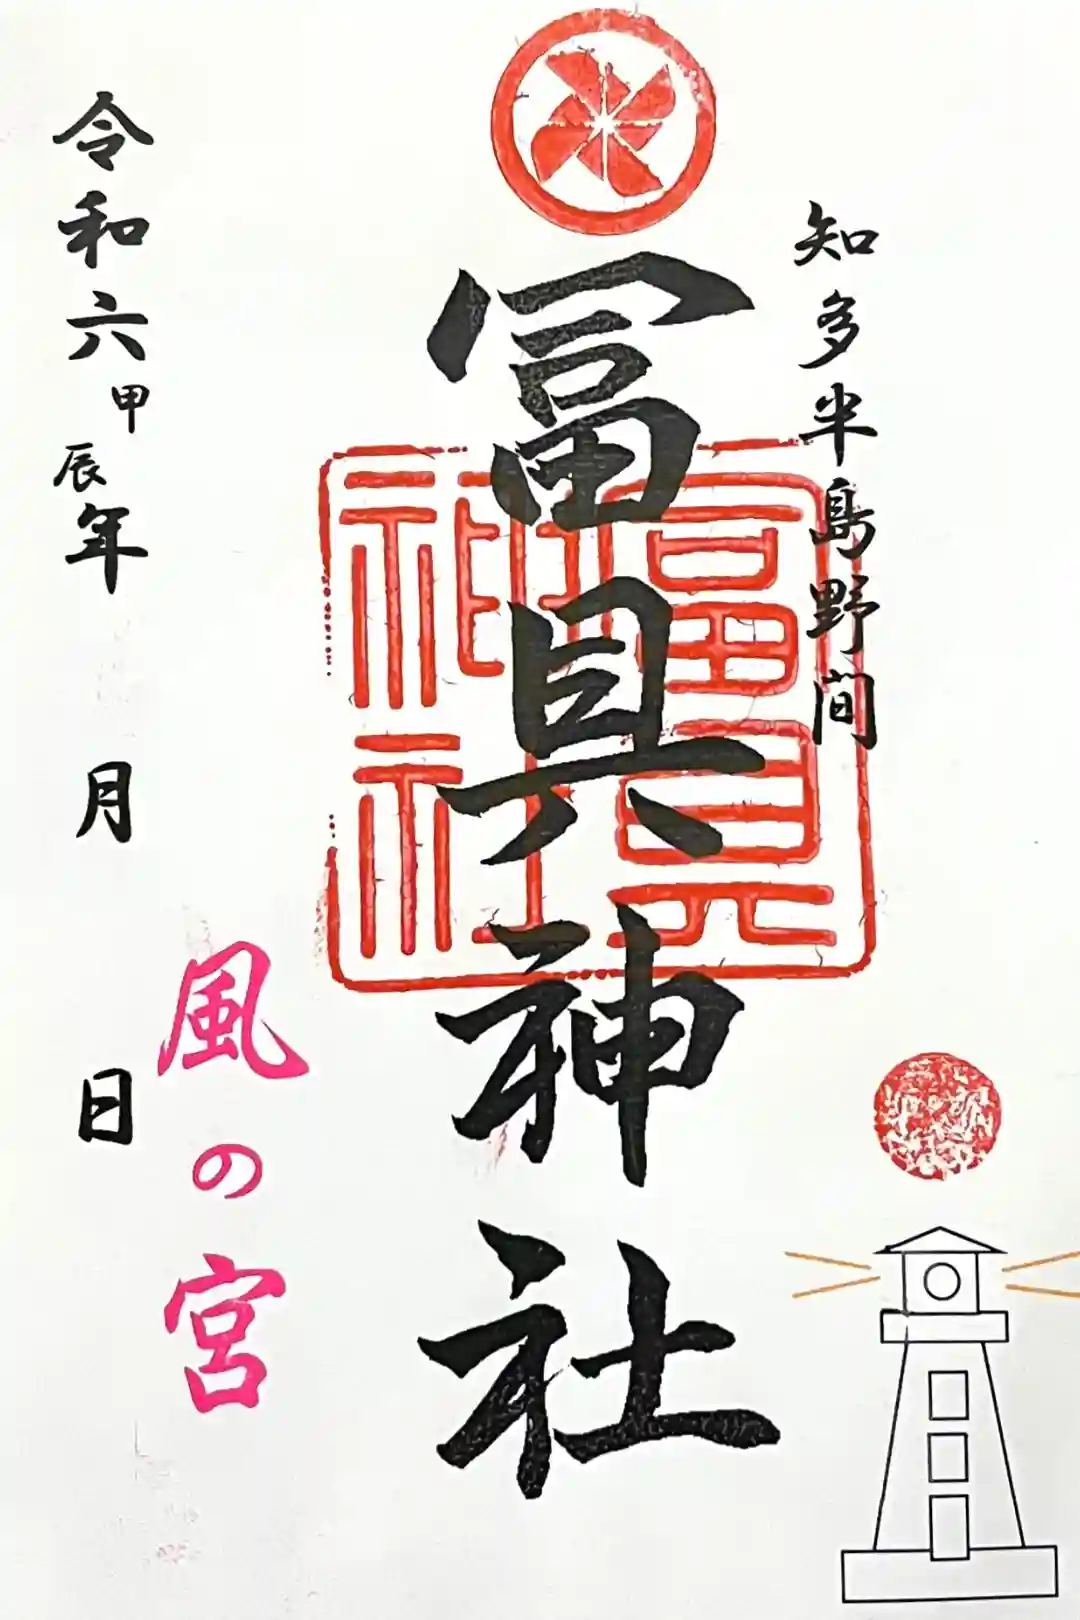 知多半島野間
冨具神社
富具神社
風の宮
令和六甲辰年 月 日